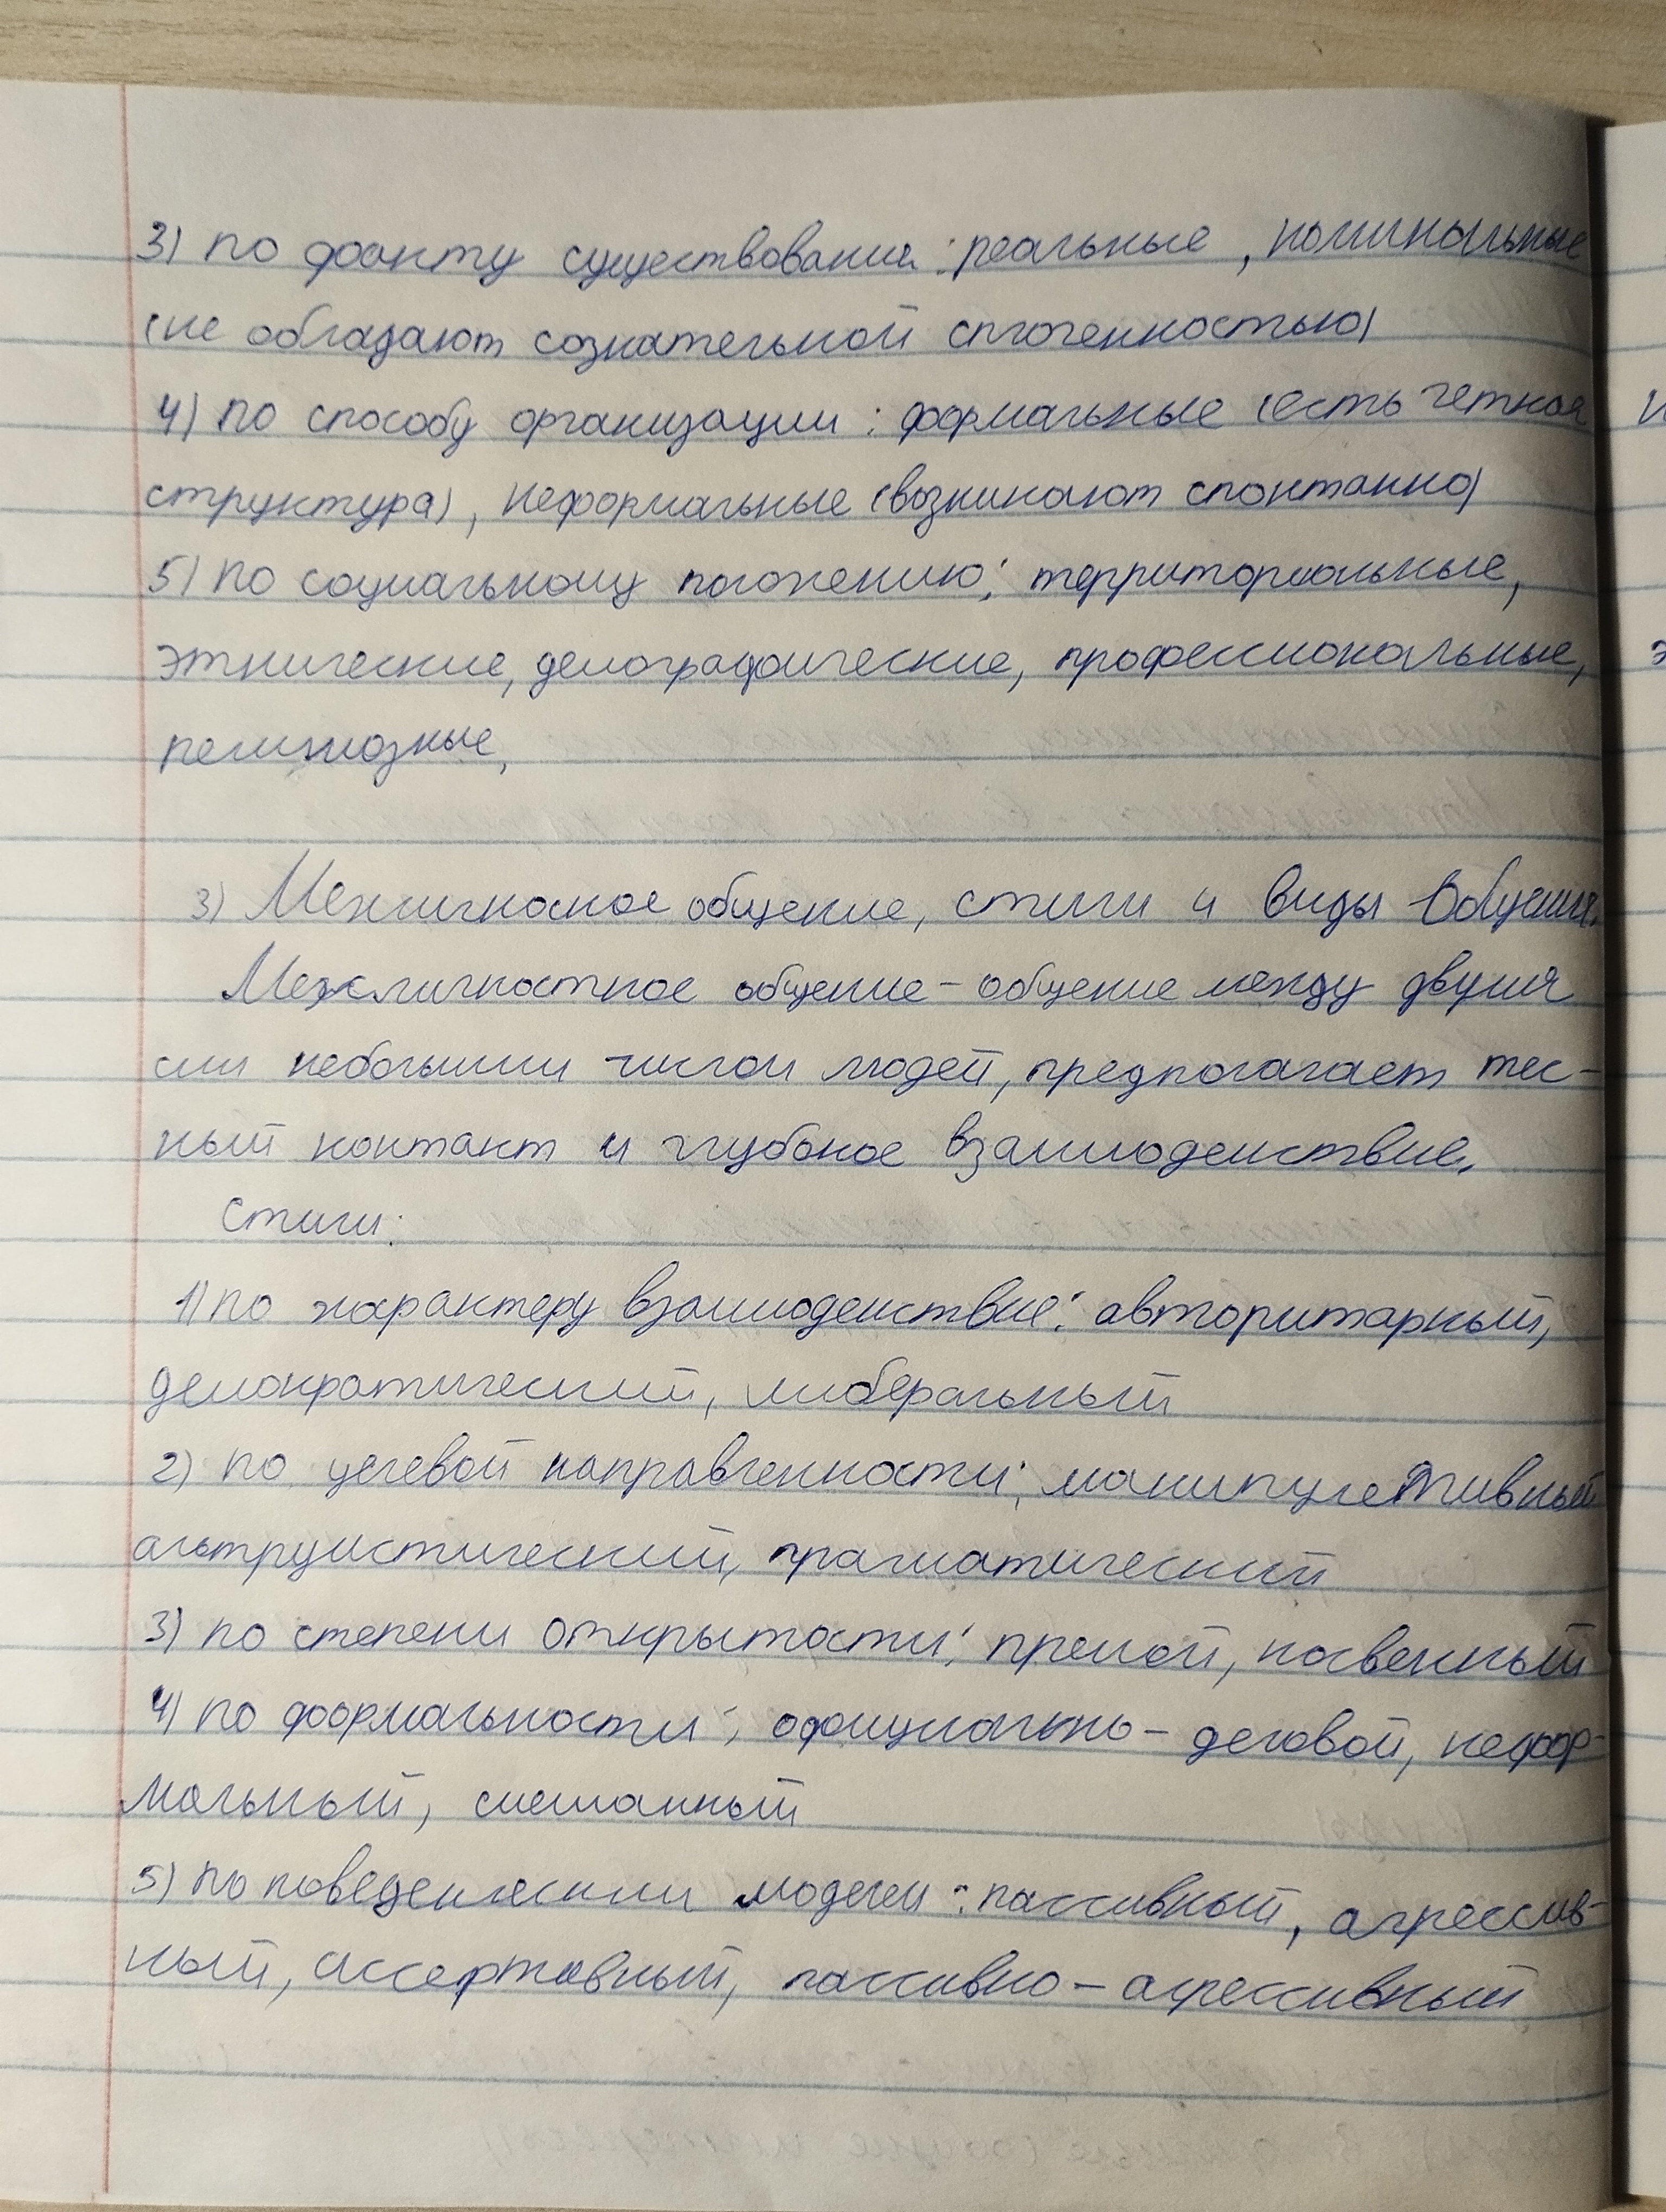 3) по факту существования: реальные, номинальные
(не обладают сознательной сплоченностью)
4) по способу организации: формальные (есть четкая
структура), неформальные (возникают спонтанно)
5) по социальному положению: территориальные,
этнические, демографические, профессиональные,
религиозные,
3) Межличносное общение, стили и виды общения.
Межличностное общение - общение между двумя
или небольшим числом людей, предполагает тес-
ный контакт и глубокое взаимодействие.
Стили:
1) по характеру взаимодействие: авторитарный,
демократический, либеральный
2) по целевой направленности: манипулетивный
альтруистический, прагматический
3) по степени открытости: премой, косвенный
4) по формальности: официально-деловой, нефор-
мальный, смешанный
5) по поведенческим моделем: пассивный, агрессив-
ный, ассертивный, пассивно-агрессивный